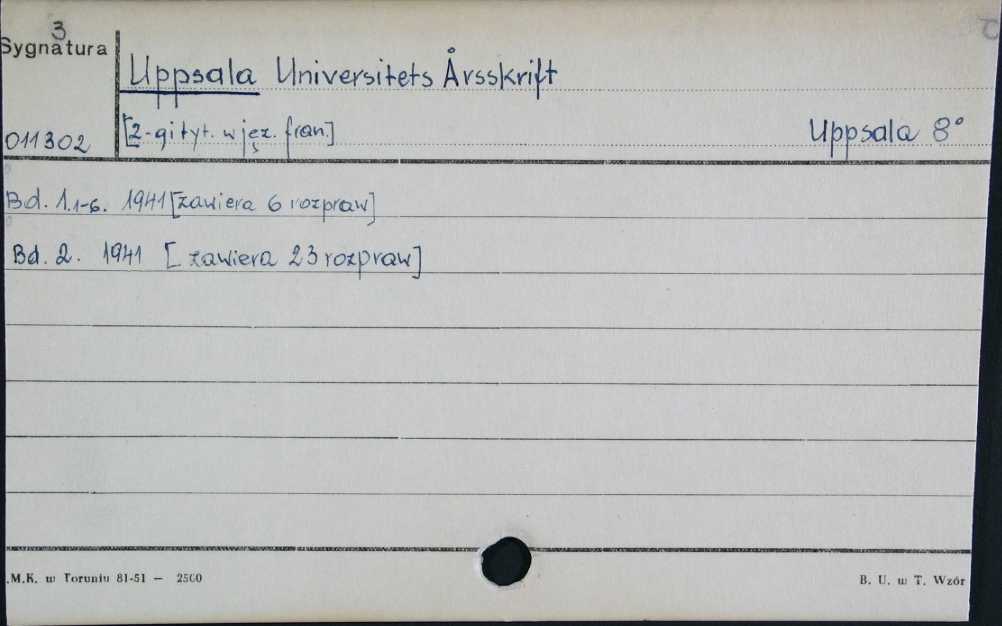 3
Sygnatura
Uppsala Universitets Årsskrift
011302
[2-gi tyt. w jęz. fran.]
Uppsala 8°
Bd. 1.1-6. 1941 [zawiera 6 rozpraw]
Bd. 2. 1941 [zawiera 23 rozpraw]
.M.K. w Toruniu 81-51 — 2500
B. U. w T. Wzór